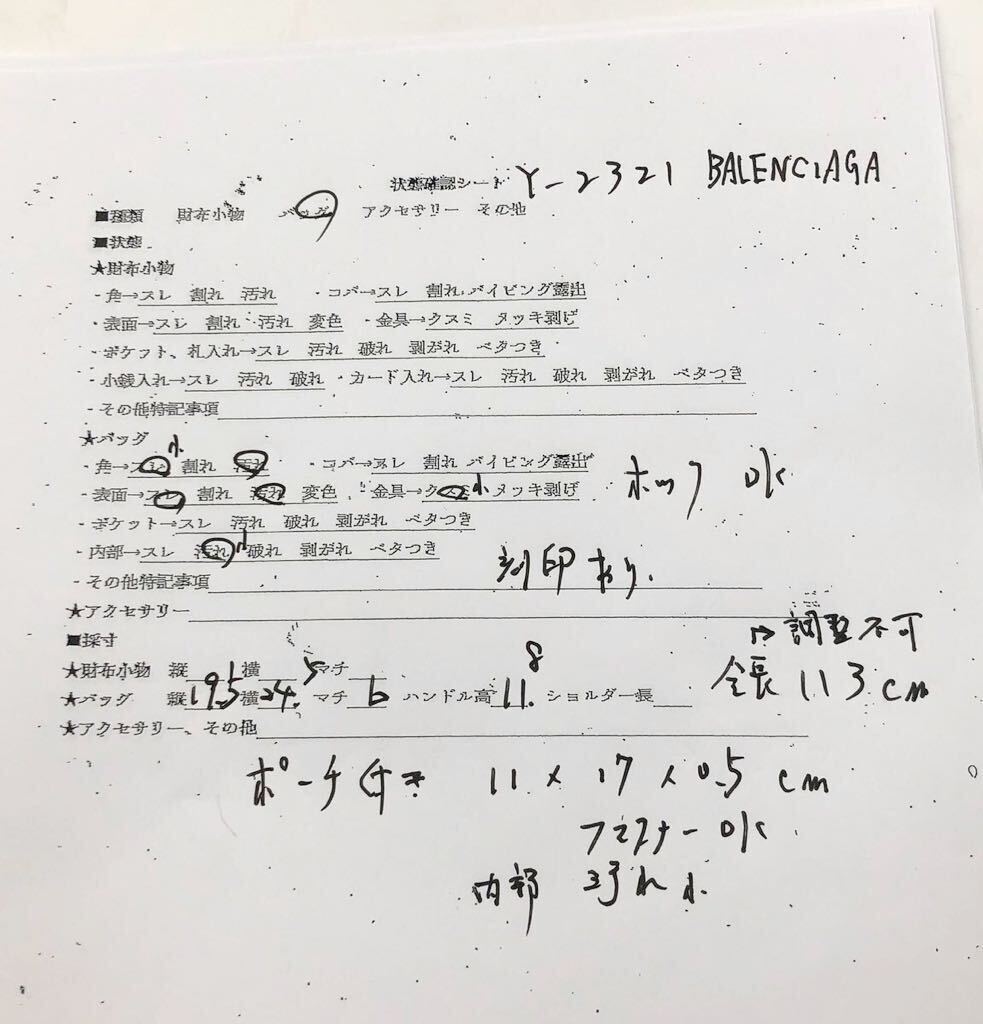 状態確認シート Y-2321 BALENCIAGA
■種類 財布小物 バッグ アクセサリー その他
■状態
★財布小物
・角→スレ 割れ 汚れ ・コバ→スレ 割れ パイピング露出
・表面→スレ 割れ 汚れ 変色 ・金具→クスミ メッキ剥げ
・ポケット、札入れ→スレ 汚れ 破れ 剥がれ ベタつき
・小銭入れ→スレ 汚れ 破れ ・カード入れ→スレ 汚れ 破れ 剥がれ ベタつき
・その他特記事項
★バッグ
・角→スレ小 割れ 汚れ ・コバ→スレ 割れ パイピング露出
・表面→スレ 割れ 汚れ 変色 ・金具→クスミ小 メッキ剥げ ホック OK
・ポケット→スレ 汚れ 破れ 剥がれ ベタつき
・内部→スレ 汚れ小 破れ 剥がれ ベタつき
・その他特記事項 刻印あり.
★アクセサリー
■採寸 → 調整不可
★財布小物 縦 横 マチ
★バッグ 縦19.5横24.5マチ 6 ハンドル高11.8 ショルダー長 全長 113cm
★アクセサリー、その他
ポーチ付き 11×17×0.5cm
ファスナー OK
内部 汚れ小.